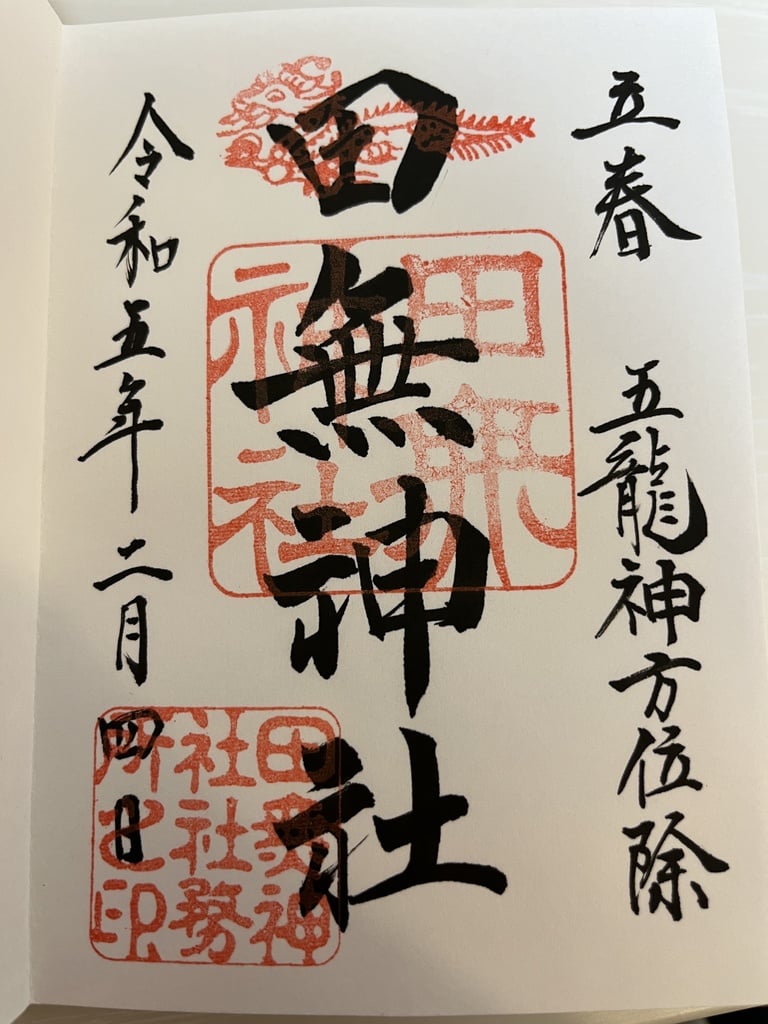 立春 五龍神方位除
田無神社
田無神社
令和五年二月四日
田無神社社務所之印